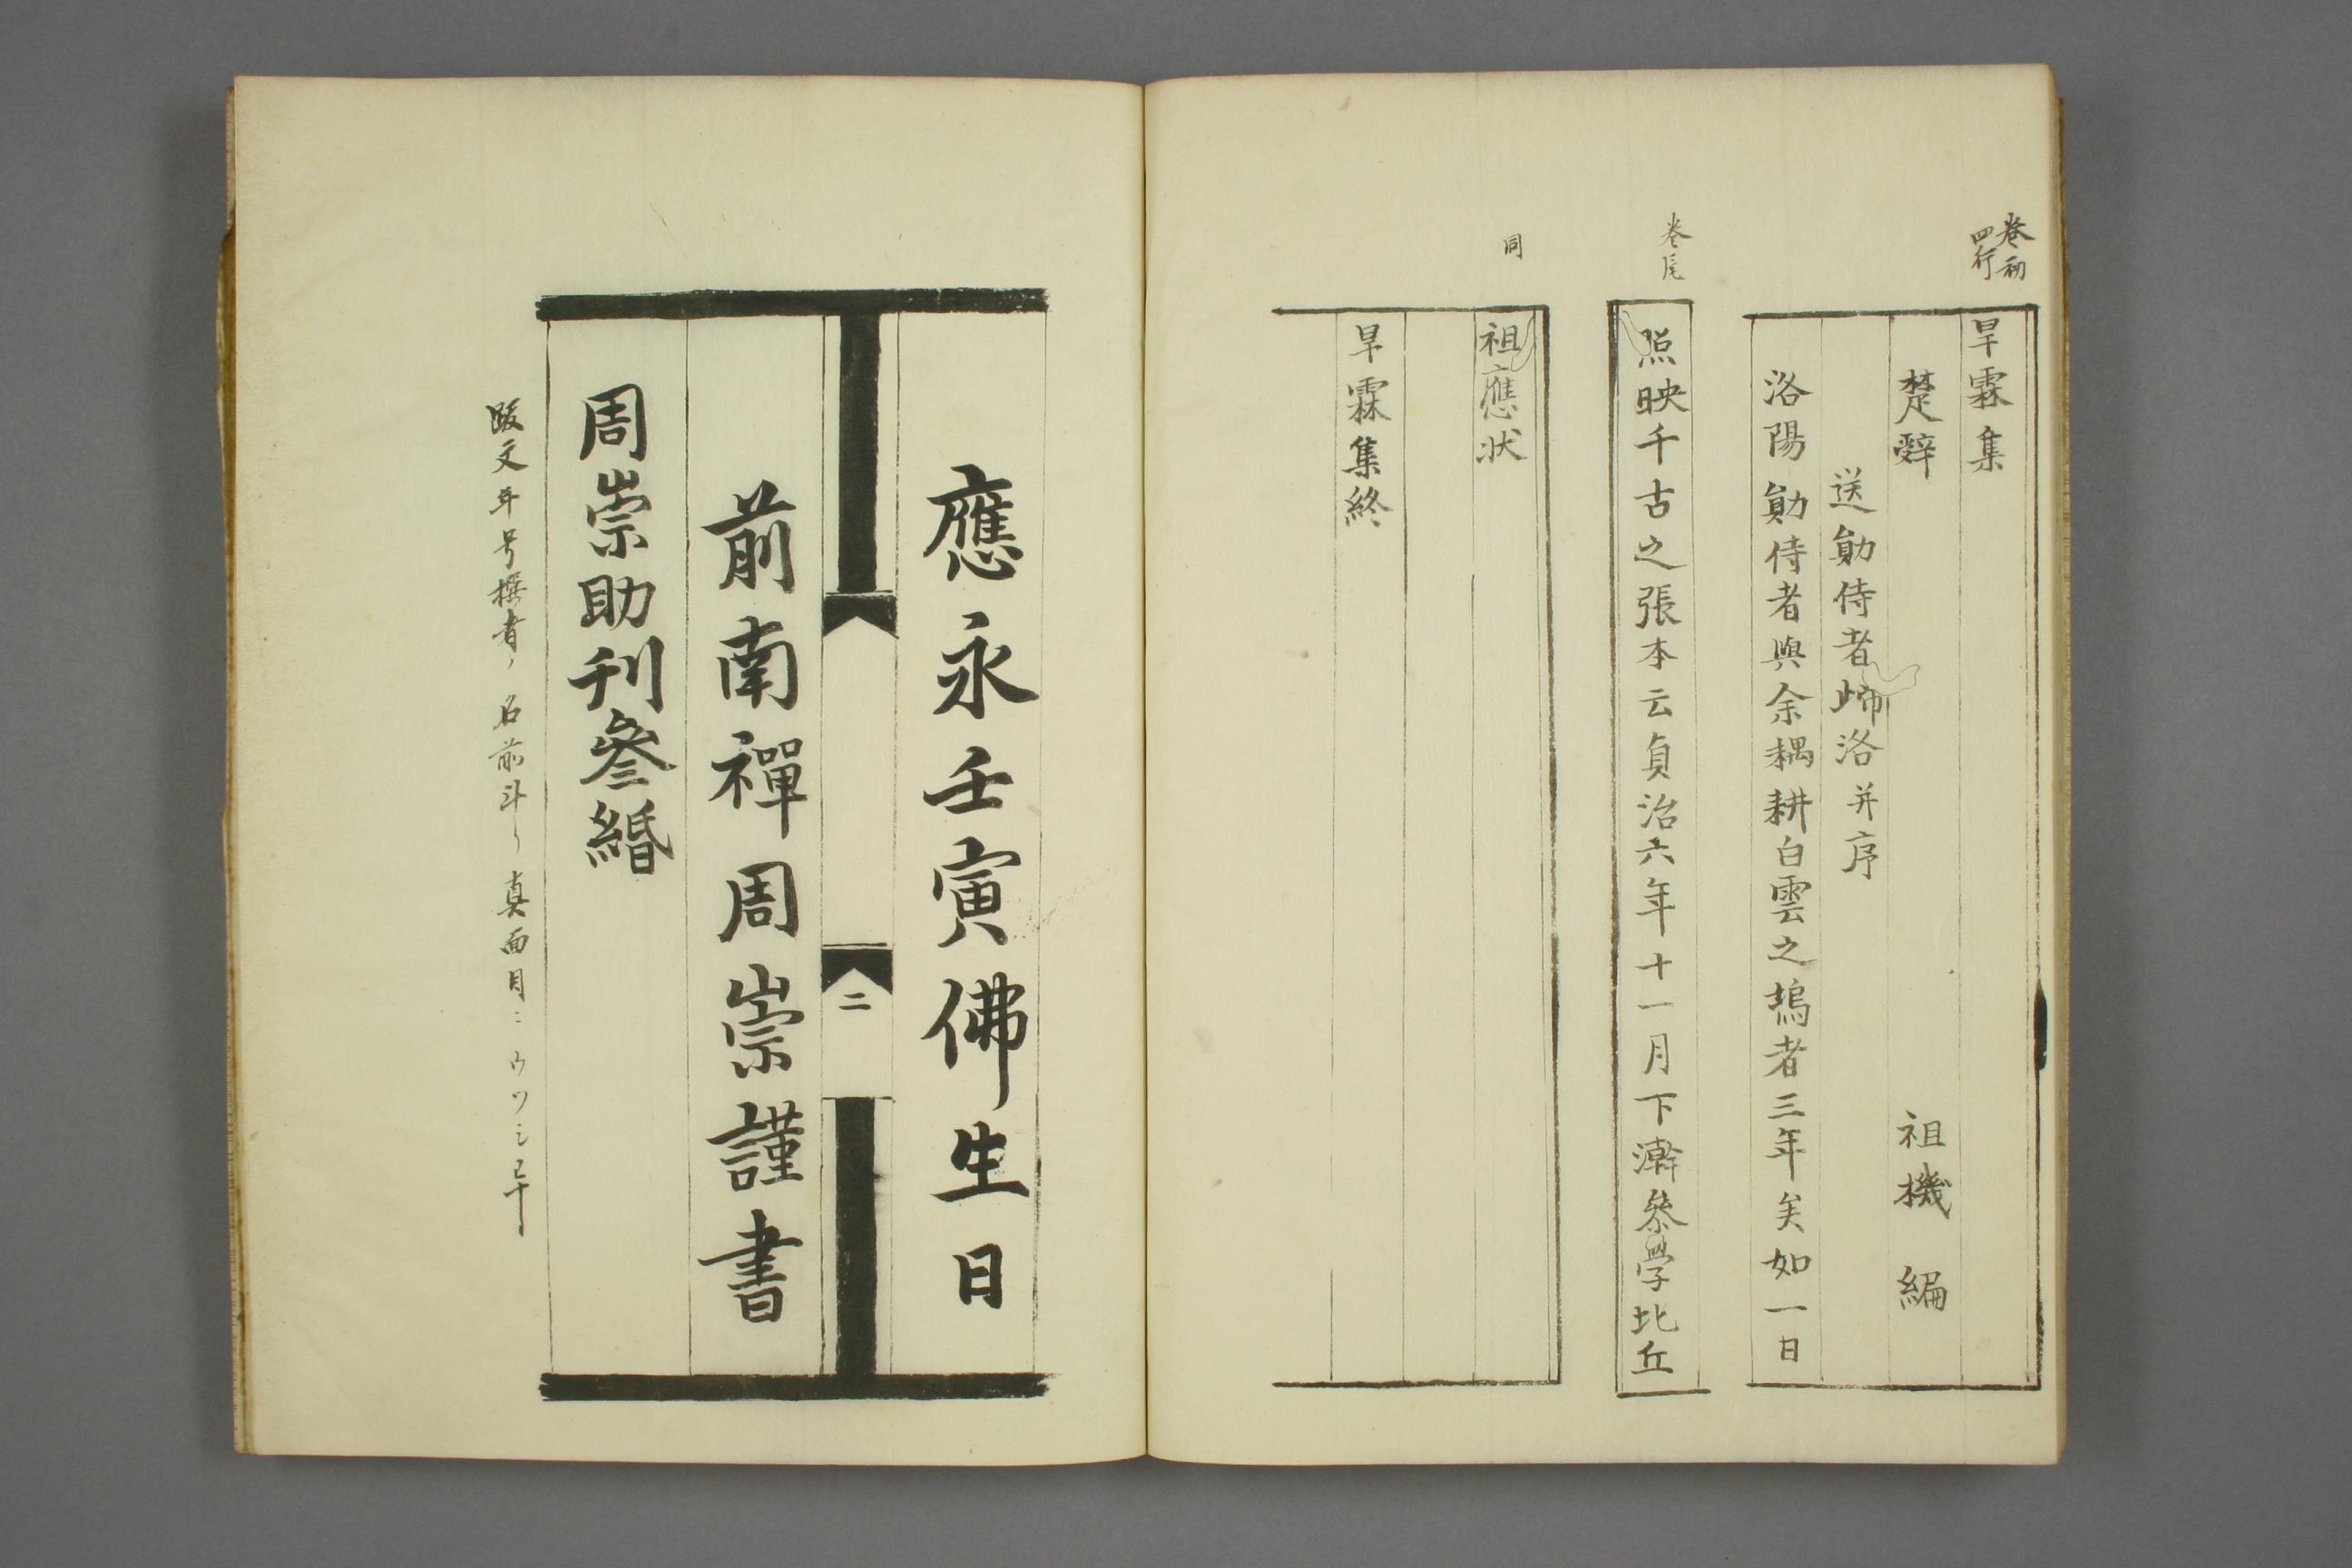 巻初
四行
旱霖集
楚辭
祖機編
送勛侍者歸洛并序
洛陽勛侍者與余耦耕白雲之塢者三年矣如一日
巻尾
照映千古之張本云貞治六年十一月下澣叅學比丘
同
祖應状
旱霖集終
應永壬寅佛生日
二
前南禪周崇謹書
周崇助刊叄緡
跋文年号撰者ノ名前斗リ真面目ニウツシ